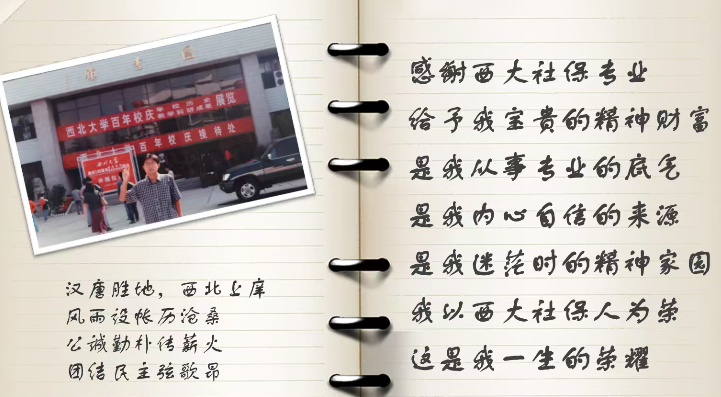 图书馆
西北大学百年校庆学校历史教学科研成果展览
西北大学百年校庆接待处
汉唐胜地，西北上庠
风雨设帐历沧桑
公诚勤朴传薪火
团结民主弦歌昂
感谢西大社保专业
给予我宝贵的精神财富
是我从事专业的底气
是我内心自信的来源
是我迷茫时的精神家园
我以西大社保人为荣
这是我一生的荣耀